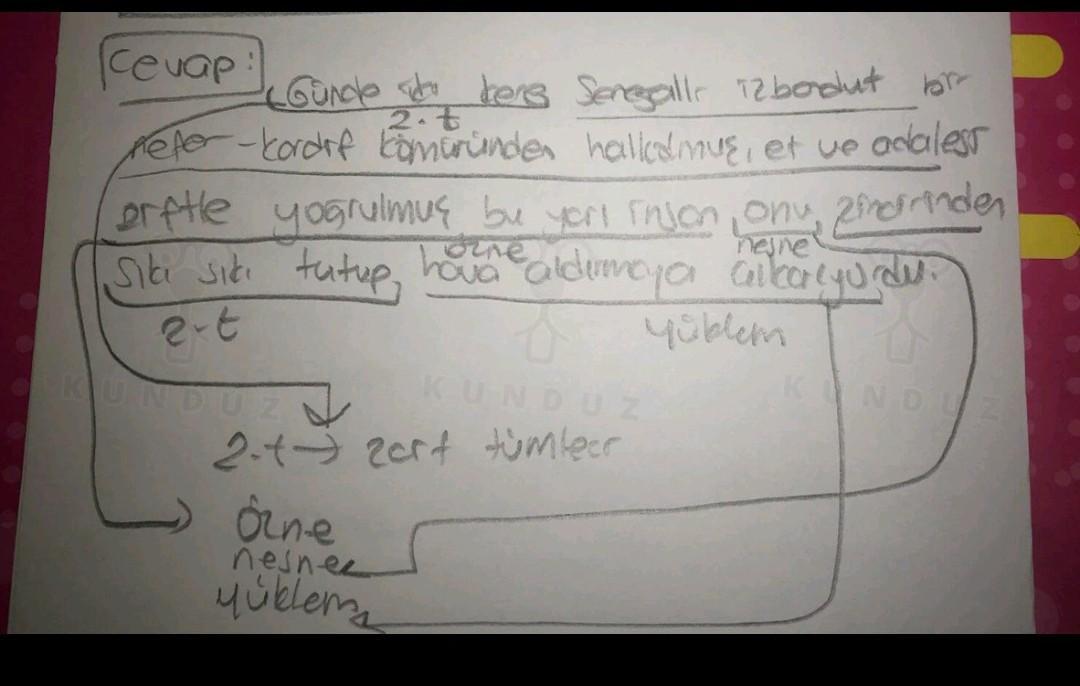 Cevap:
Günde iki kere Senegalli izbandut bir
2.t
nefer-kardif kömüründen halkedilmiş, et ve adalesi
ziftle yoğrulmuş bu yarı insan, onu, zincirinden
özne nesne
sıkı sıkı tutup, hava aldırmaya çıkarıyordu.
z.t yüklem
KUNDUZ KUNDUZ KUNDUZ
2.t → zarf tümleci
Özne
nesne
yüklem